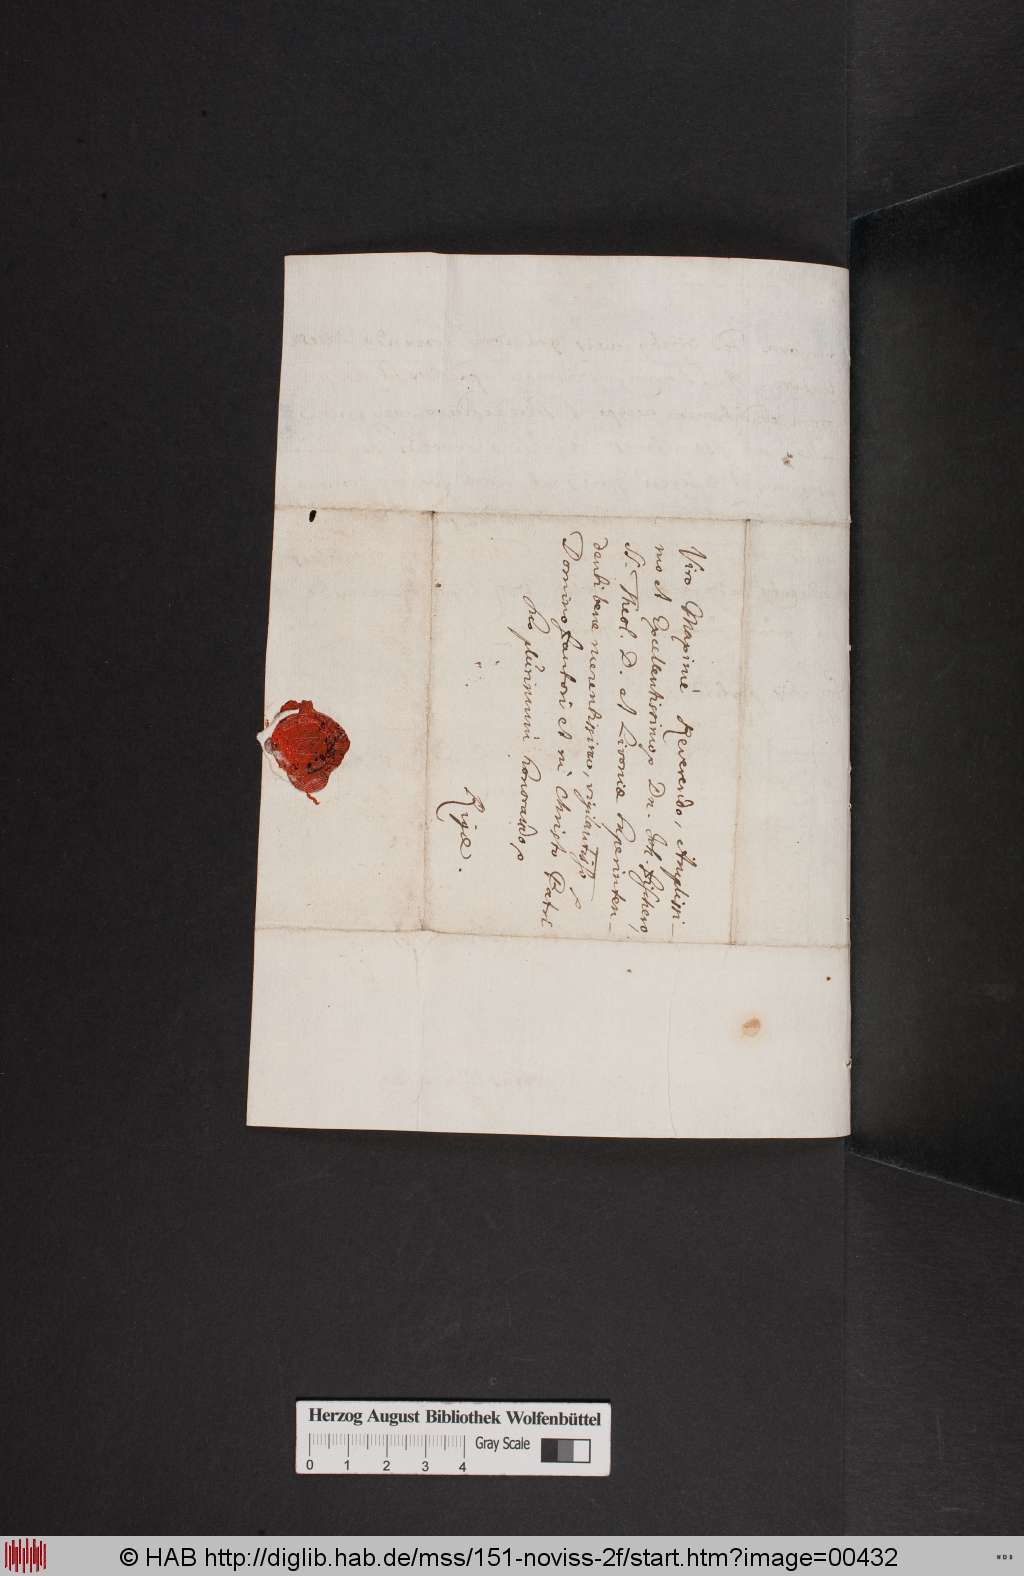 Viro Maximè Reverendo, Amplissi-
mo et Excellentissimo Dn. Joh. Fischero,
S. Theol. D. et Livoniæ Superinten-
denti bene merentissimo, vigilantisso
Domino Fautori et in Christo Patri
suo plurimum honorando
Rigæ.
Herzog August Bibliothek Wolfenbüttel
Gray Scale
0 1 2 3 4
© HAB http://diglib.hab.de/mss/151-noviss-2f/start.htm?image=00432